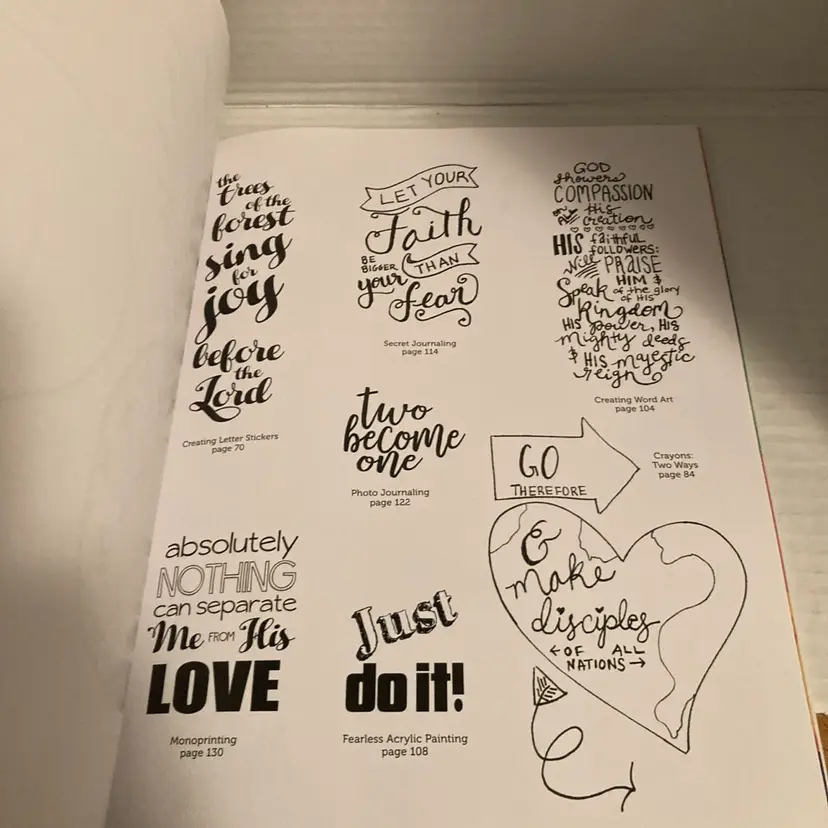 the
trees
of the
forest
sing
for
joy
before
the
Lord
Creating Letter Stickers
page 70
LET YOUR
Faith
BE
BIGGER
THAN
your
fear
Secret Journaling
page 114
GOD
showers
COMPASSION
on All His
creation
HIS faithful
FOLLOWERS:
Will PRAISE
HIM &
Speak of the glory
of HIS
Kingdom
HIS power, HIS
Mighty deeds
& HIS majestic
reign
Creating Word Art
page 104
two
become
one
Photo Journaling
page 122
GO
THEREFORE
Crayons:
Two Ways
page 84
&
make
disciples
OF ALL
NATIONS
absolutely
NOTHING
can separate
Me FROM His
LOVE
Monoprinting
page 130
Just
do it!
Fearless Acrylic Painting
page 108